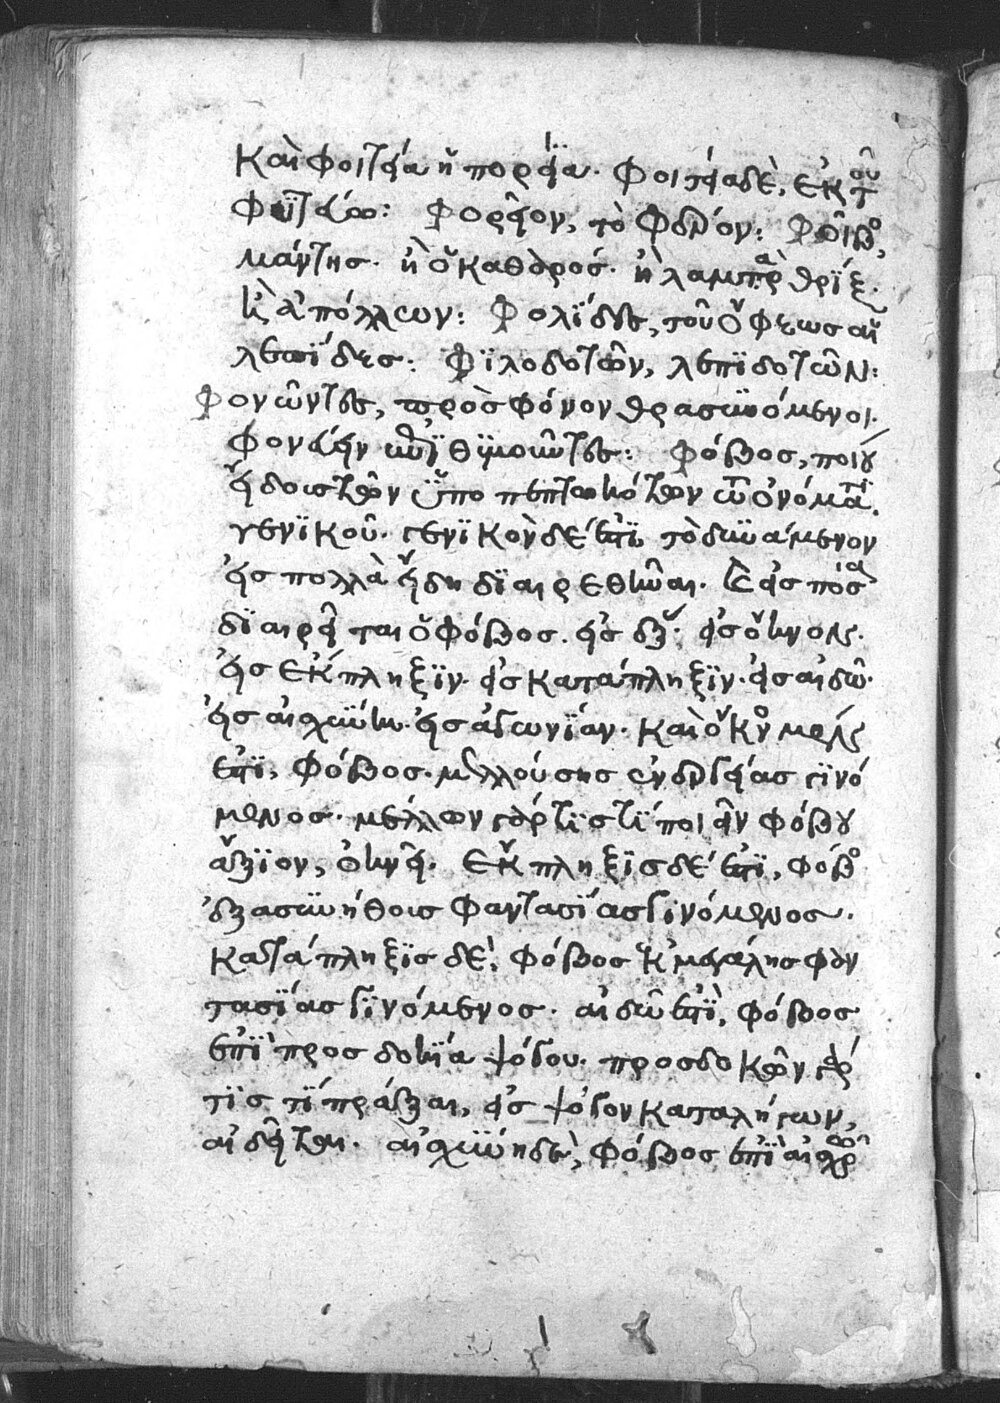 καὶ φοιτεία ἡ πορεία. φοιτεία δὲ, ἐκ τοῦ
φοιτείω: φορεῖον, τὸ φερείον: φοῖβος,
μάντης. ἢ ὁ καθαρός. ἢ λαμπρὰ θρίξ.
καὶ ἀπόλλων: φολίδες, τοῦ ὄφεως αἱ
λεπίδες: φιλοδοτῶν, λεπιδοτῶν:
φονῶντες, πρὸς φόνον θρασυνόμενοι.
φονᾶν ἐπιθυμοῦντες: φόβος, ποίου
εἴδοις τῶν ὑποπεπτωκότων τῶ ὀνόματι.
γενικοῦ. γενικὸν δέ ἐστι τὸ δυνάμενον
εἰς πολλὰ εἴδη διαιρεθῆναι. καὶ εἰς πόσα
διαιρεῖται ὁ φόβος. εἰς ἕξ. εἰς ὄκνον.
εἰς ἔκπληξιν. εἰς κατάπληξιν. εἰς αἰδῶ.
εἰς αἰσχύνην. εἰς ἀγωνίαν. καὶ ὄκνος μέν
ἐστι, φόβος μελλούσης ἐνεργείας γινό
μενος. μέλλων γάρ τις τί ποιεῖν φόβου
ἄξιον, ὀκνεῖ. ἔκπληξις δέ ἐστι, φόβος
ἐξ ἀσυνήθους φαντασίας γινόμενος.
κατάπληξις δὲ, φόβος ἐκ μεγάλης φαν
τασίας γινόμενος. αἰδώς ἐστι, φόβος
ἐπὶ προσδοκία ψόγου. προσδοκῶν γάρ
τις τί πράξαι, εἰς ψόγον καταλήγων,
αἰδεῖται. αἰσχύνη δὲ, φόβος ἐπὶ αἰσχρῶ